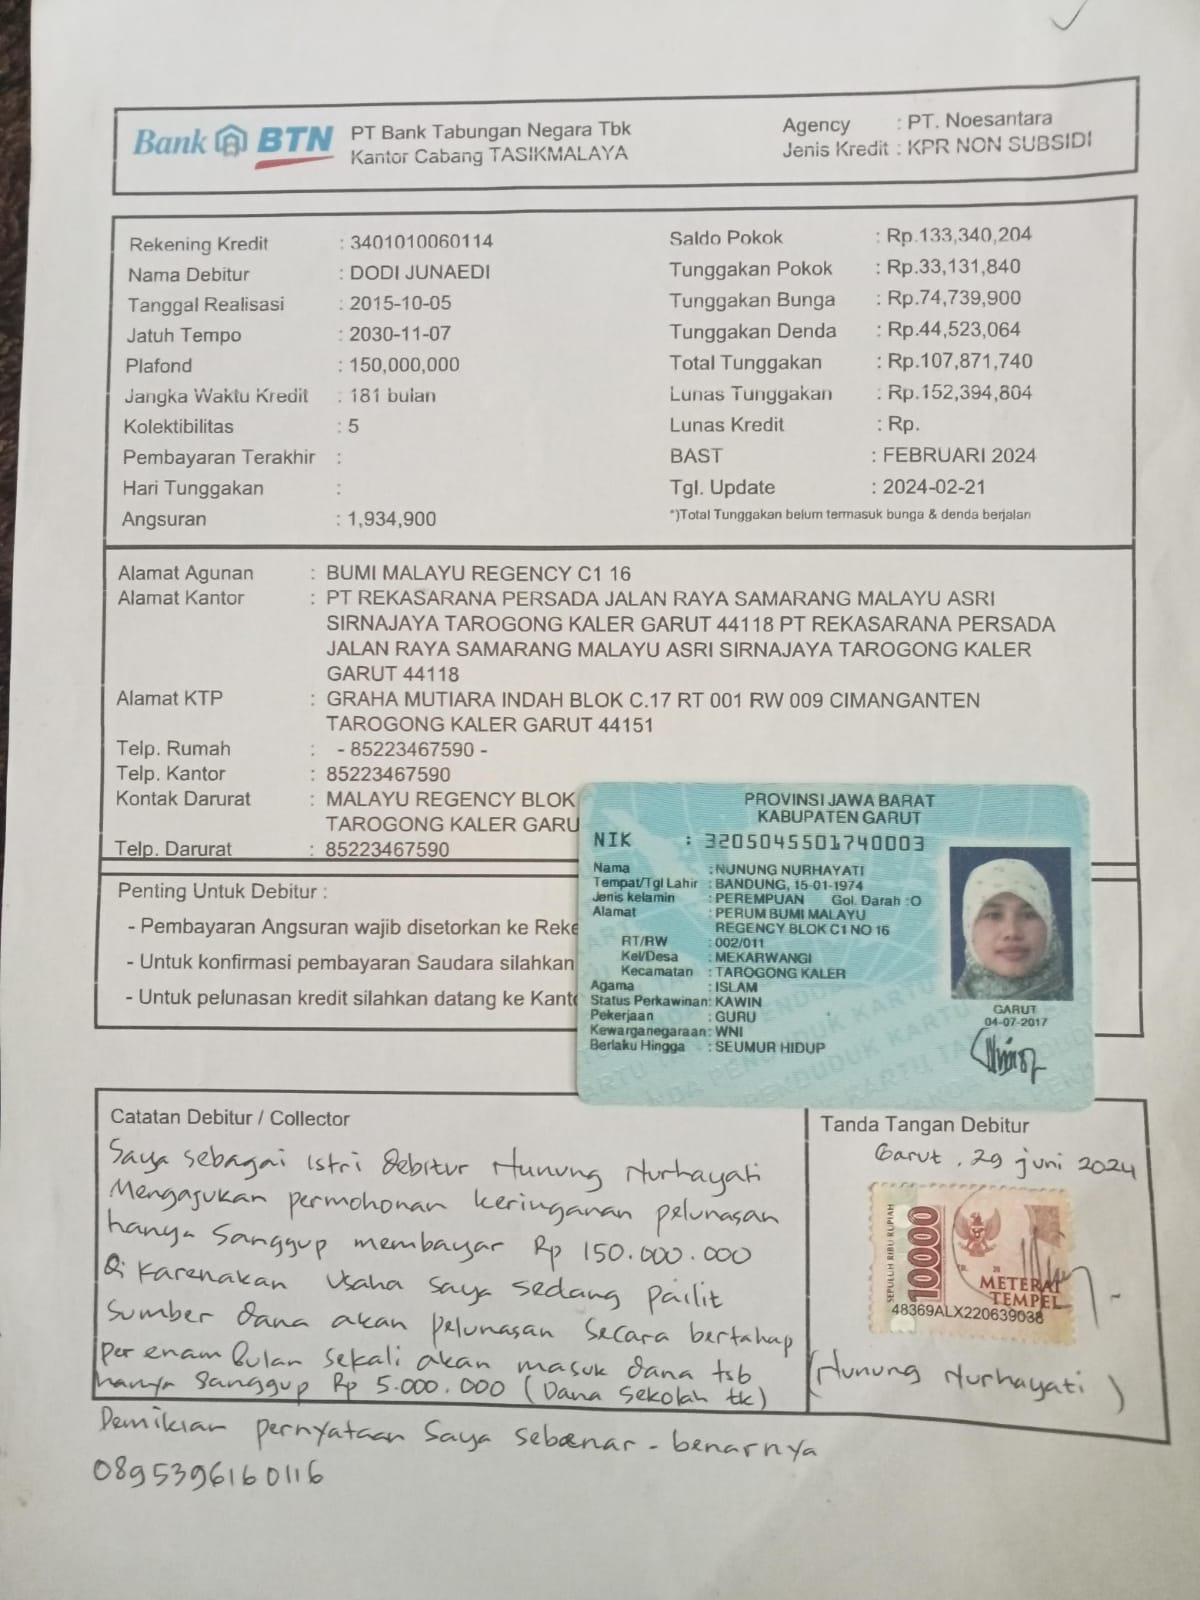 Bank BTN PT Bank Tabungan Negara Tbk
Kantor Cabang TASIKMALAYA
Agency : PT. Noesantara
Jenis Kredit : KPR NON SUBSIDI
Rekening Kredit : 3401010060114
Nama Debitur : DODI JUNAEDI
Tanggal Realisasi : 2015-10-05
Jatuh Tempo : 2030-11-07
Plafond : 150,000,000
Jangka Waktu Kredit : 181 bulan
Kolektibilitas : 5
Pembayaran Terakhir :
Hari Tunggakan :
Angsuran : 1,934,900
Saldo Pokok : Rp.133,340,204
Tunggakan Pokok : Rp.33,131,840
Tunggakan Bunga : Rp.74,739,900
Tunggakan Denda : Rp.44,523,064
Total Tunggakan : Rp.107,871,740
Lunas Tunggakan : Rp.152,394,804
Lunas Kredit : Rp.
BAST : FEBRUARI 2024
Tgl. Update : 2024-02-21
*)Total Tunggakan belum termasuk bunga & denda berjalan
Alamat Agunan : BUMI MALAYU REGENCY C1 16
Alamat Kantor : PT REKASARANA PERSADA JALAN RAYA SAMARANG MALAYU ASRI
SIRNAJAYA TAROGONG KALER GARUT 44118 PT REKASARANA PERSADA
JALAN RAYA SAMARANG MALAYU ASRI SIRNAJAYA TAROGONG KALER
GARUT 44118
Alamat KTP : GRAHA MUTIARA INDAH BLOK C.17 RT 001 RW 009 CIMANGANTEN
TAROGONG KALER GARUT 44151
Telp. Rumah : - 85223467590 -
Telp. Kantor : 85223467590
Kontak Darurat : MALAYU REGENCY BLOK
TAROGONG KALER GARU
Telp. Darurat : 85223467590
Penting Untuk Debitur :
- Pembayaran Angsuran wajib disetorkan ke Reke
- Untuk konfirmasi pembayaran Saudara silahkan
- Untuk pelunasan kredit silahkan datang ke Kant
PROVINSI JAWA BARAT
KABUPATEN GARUT
NIK : 3205045501740003
Nama : NUNUNG NURHAYATI
Tempat/Tgl Lahir : BANDUNG, 15-01-1974
Jenis kelamin : PEREMPUAN Gol. Darah : O
Alamat : PERUM BUMI MALAYU
REGENCY BLOK C1 NO 16
RT/RW : 002/011
Kel/Desa : MEKARWANGI
Kecamatan : TAROGONG KALER
Agama : ISLAM
Status Perkawinan: KAWIN
Pekerjaan : GURU
Kewarganegaraan: WNI
Berlaku Hingga : SEUMUR HIDUP
GARUT
04-07-2017
Catatan Debitur / Collector
Saya sebagai istri debitur Nunung Nurhayati
Mengajukan permohonan keringanan pelunasan
hanya sanggup membayar Rp 150.000.000
Di karenakan usaha saya sedang pailit
Sumber dana akan pelunasan secara bertahap
per enam bulan sekali akan masuk dana tsb
hanya sanggup Rp 5.000.000 (Dana Sekolah tk)
Demikian pernyataan saya sebenar-benarnya
0895396160116
Tanda Tangan Debitur
Garut, 29 juni 2024
SEPULUH RIBU RUPIAH
10000
METERAI
TEMPEL
48369ALX220639038
(Nunung Nurhayati)